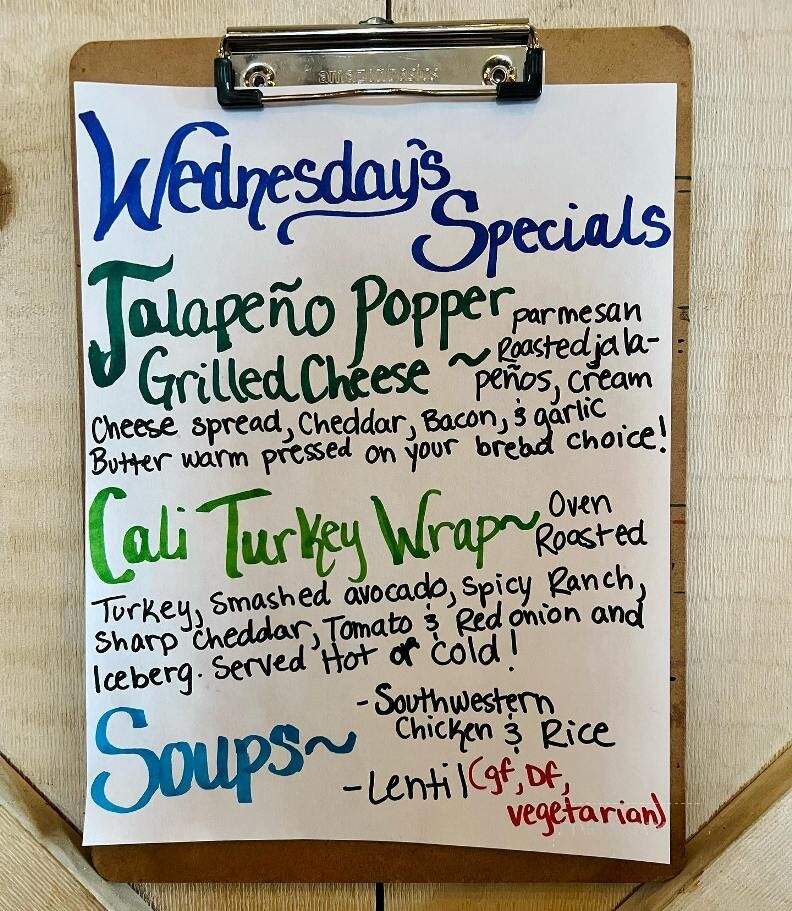 amazonbasics
Wednesday's
Specials
Jalapeño Popper parmesan
Grilled Cheese ~ Roasted jala-
peños, cream
Cheese spread, Cheddar, Bacon, & garlic
Butter warm pressed on your bread choice!
Cali Turkey Wrap~ Oven
Roasted
Turkey, Smashed avocado, Spicy Ranch,
Sharp Cheddar, Tomato & Red onion and
Iceberg. Served Hot or Cold!
Soups~ -Southwestern
Chicken & Rice
-Lentil (gf, DF,
vegetarian)